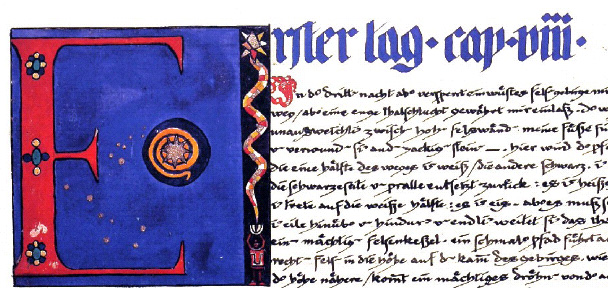 Erster tag · cap · viii ·
In d dritt nacht ab versperrt ein wüstes felsgebirge mir
weg / ab eine enge thalschlucht gewährt mir einlaß · d
unausweichli zwisch hoh felswänd · meine füße si
verwund si and zackig stein — · hier wird d pf
die eine hälfte des weges is weiß / die andere schwarz · i
die schwarze seite u pralle entsetzt zurück : es is heiß
i trete auf die weiße hälfte : es is eis · ab es muß s
i eile hinüb u hindur u endli weitet si das tha
ein mächtig felsenkeßel · ein schmal pfad führt a
recht fels in die höhe auf d kam des gebirges · wie
d höhe nähere / komt ein mächtiges dröhn von d a